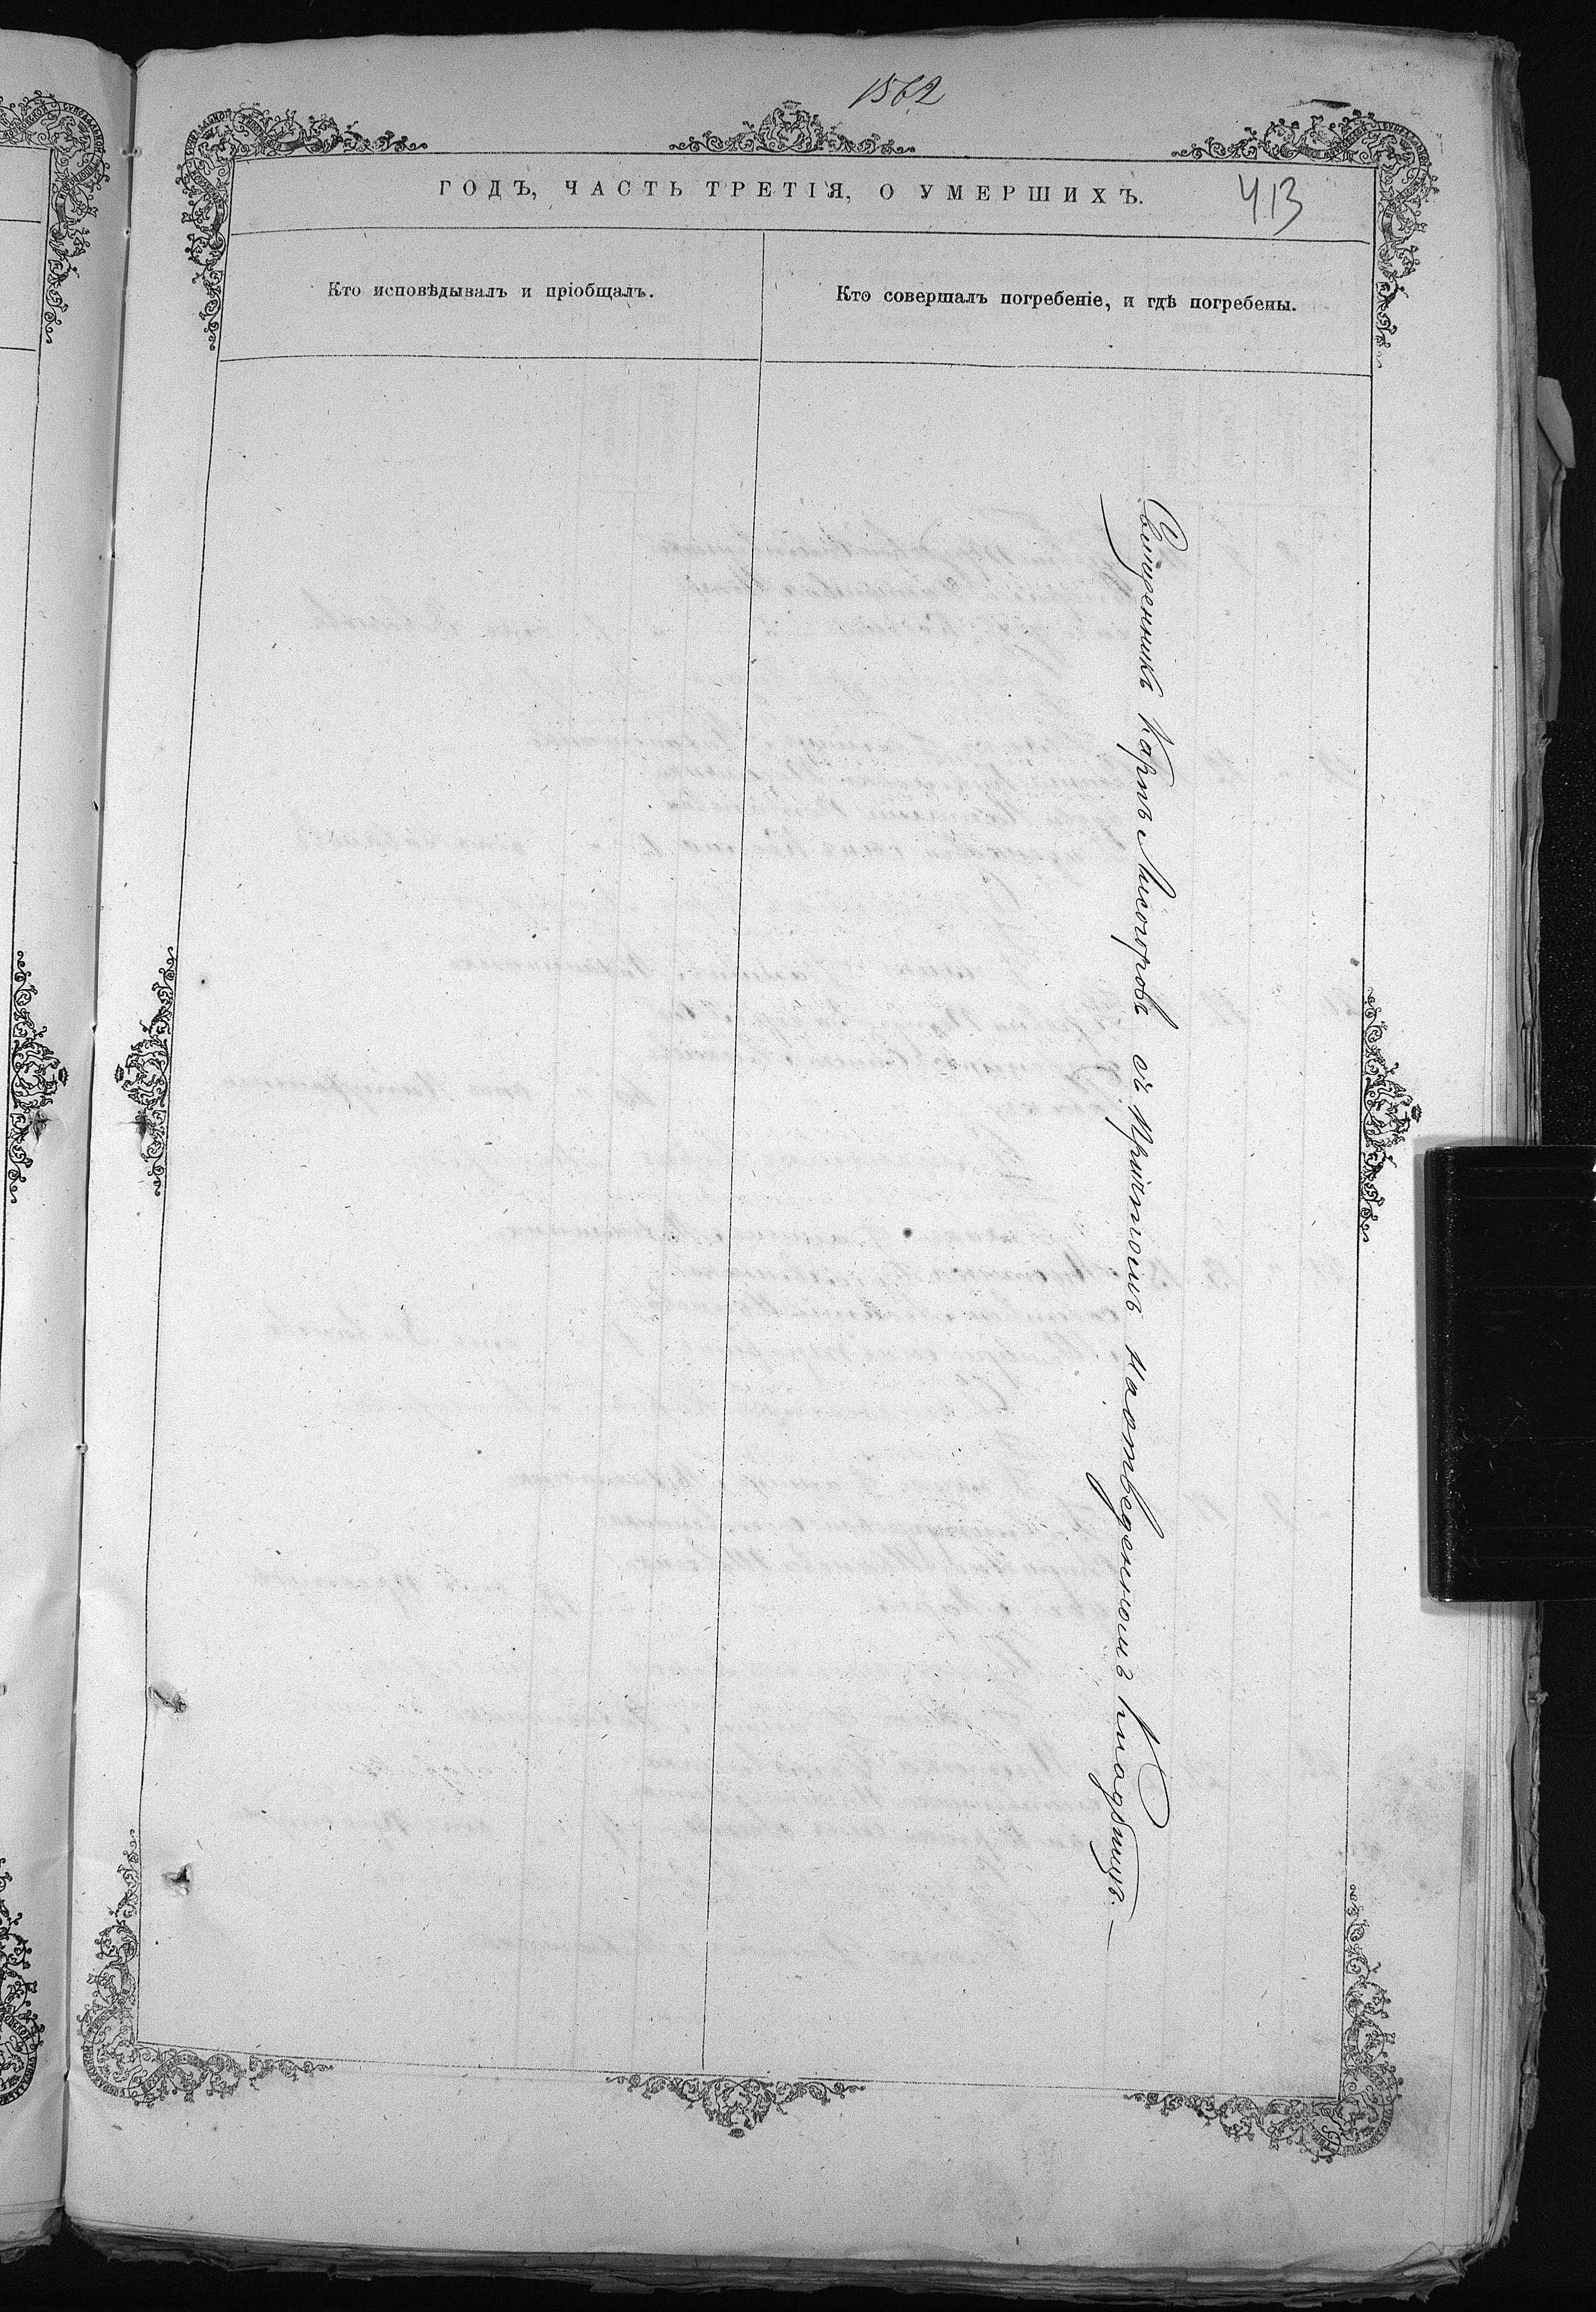 1562
ГОДЪ, ЧАСТЬ ТРЕТІЯ, О УМЕРШИХЪ.
413
Кто исповѣдывалъ и пріобщалъ.
Кто совершалъ погребеніе, и гдѣ погребены.
Священникъ Карпъ съ причтомъ на отведенномъ кладбищѣ.